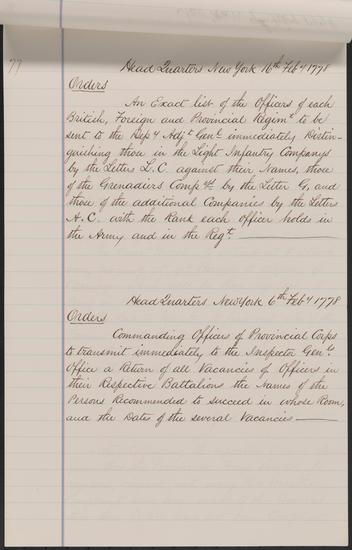 77
Head Quarters New York 16th Feby 1778
Orders
An Exact list of the Officers of each
British, Foreign and Provincial Regimt to be
sent to the Depy Adjt Genl immediately, Distin-
guishing those in the Light Infantry Companys
by the Letters L.C. against their Names, those
of the Grenadiers Compys by the Letter G, and
those of the additional Companies by the Letters
A.C. with the Rank each officer holds in
the Army and in the Regt.
Head Quarters New York 6th Feby 1778
Orders
Commanding Officers of Provincial Corps
to transmit immediately to the Inspector Genls
Office a Return of all Vacancies of Officers in
their Respective Battalions the Names of the
Persons Recommended to succeed in whose Room,
and the Dates of the several Vacancies